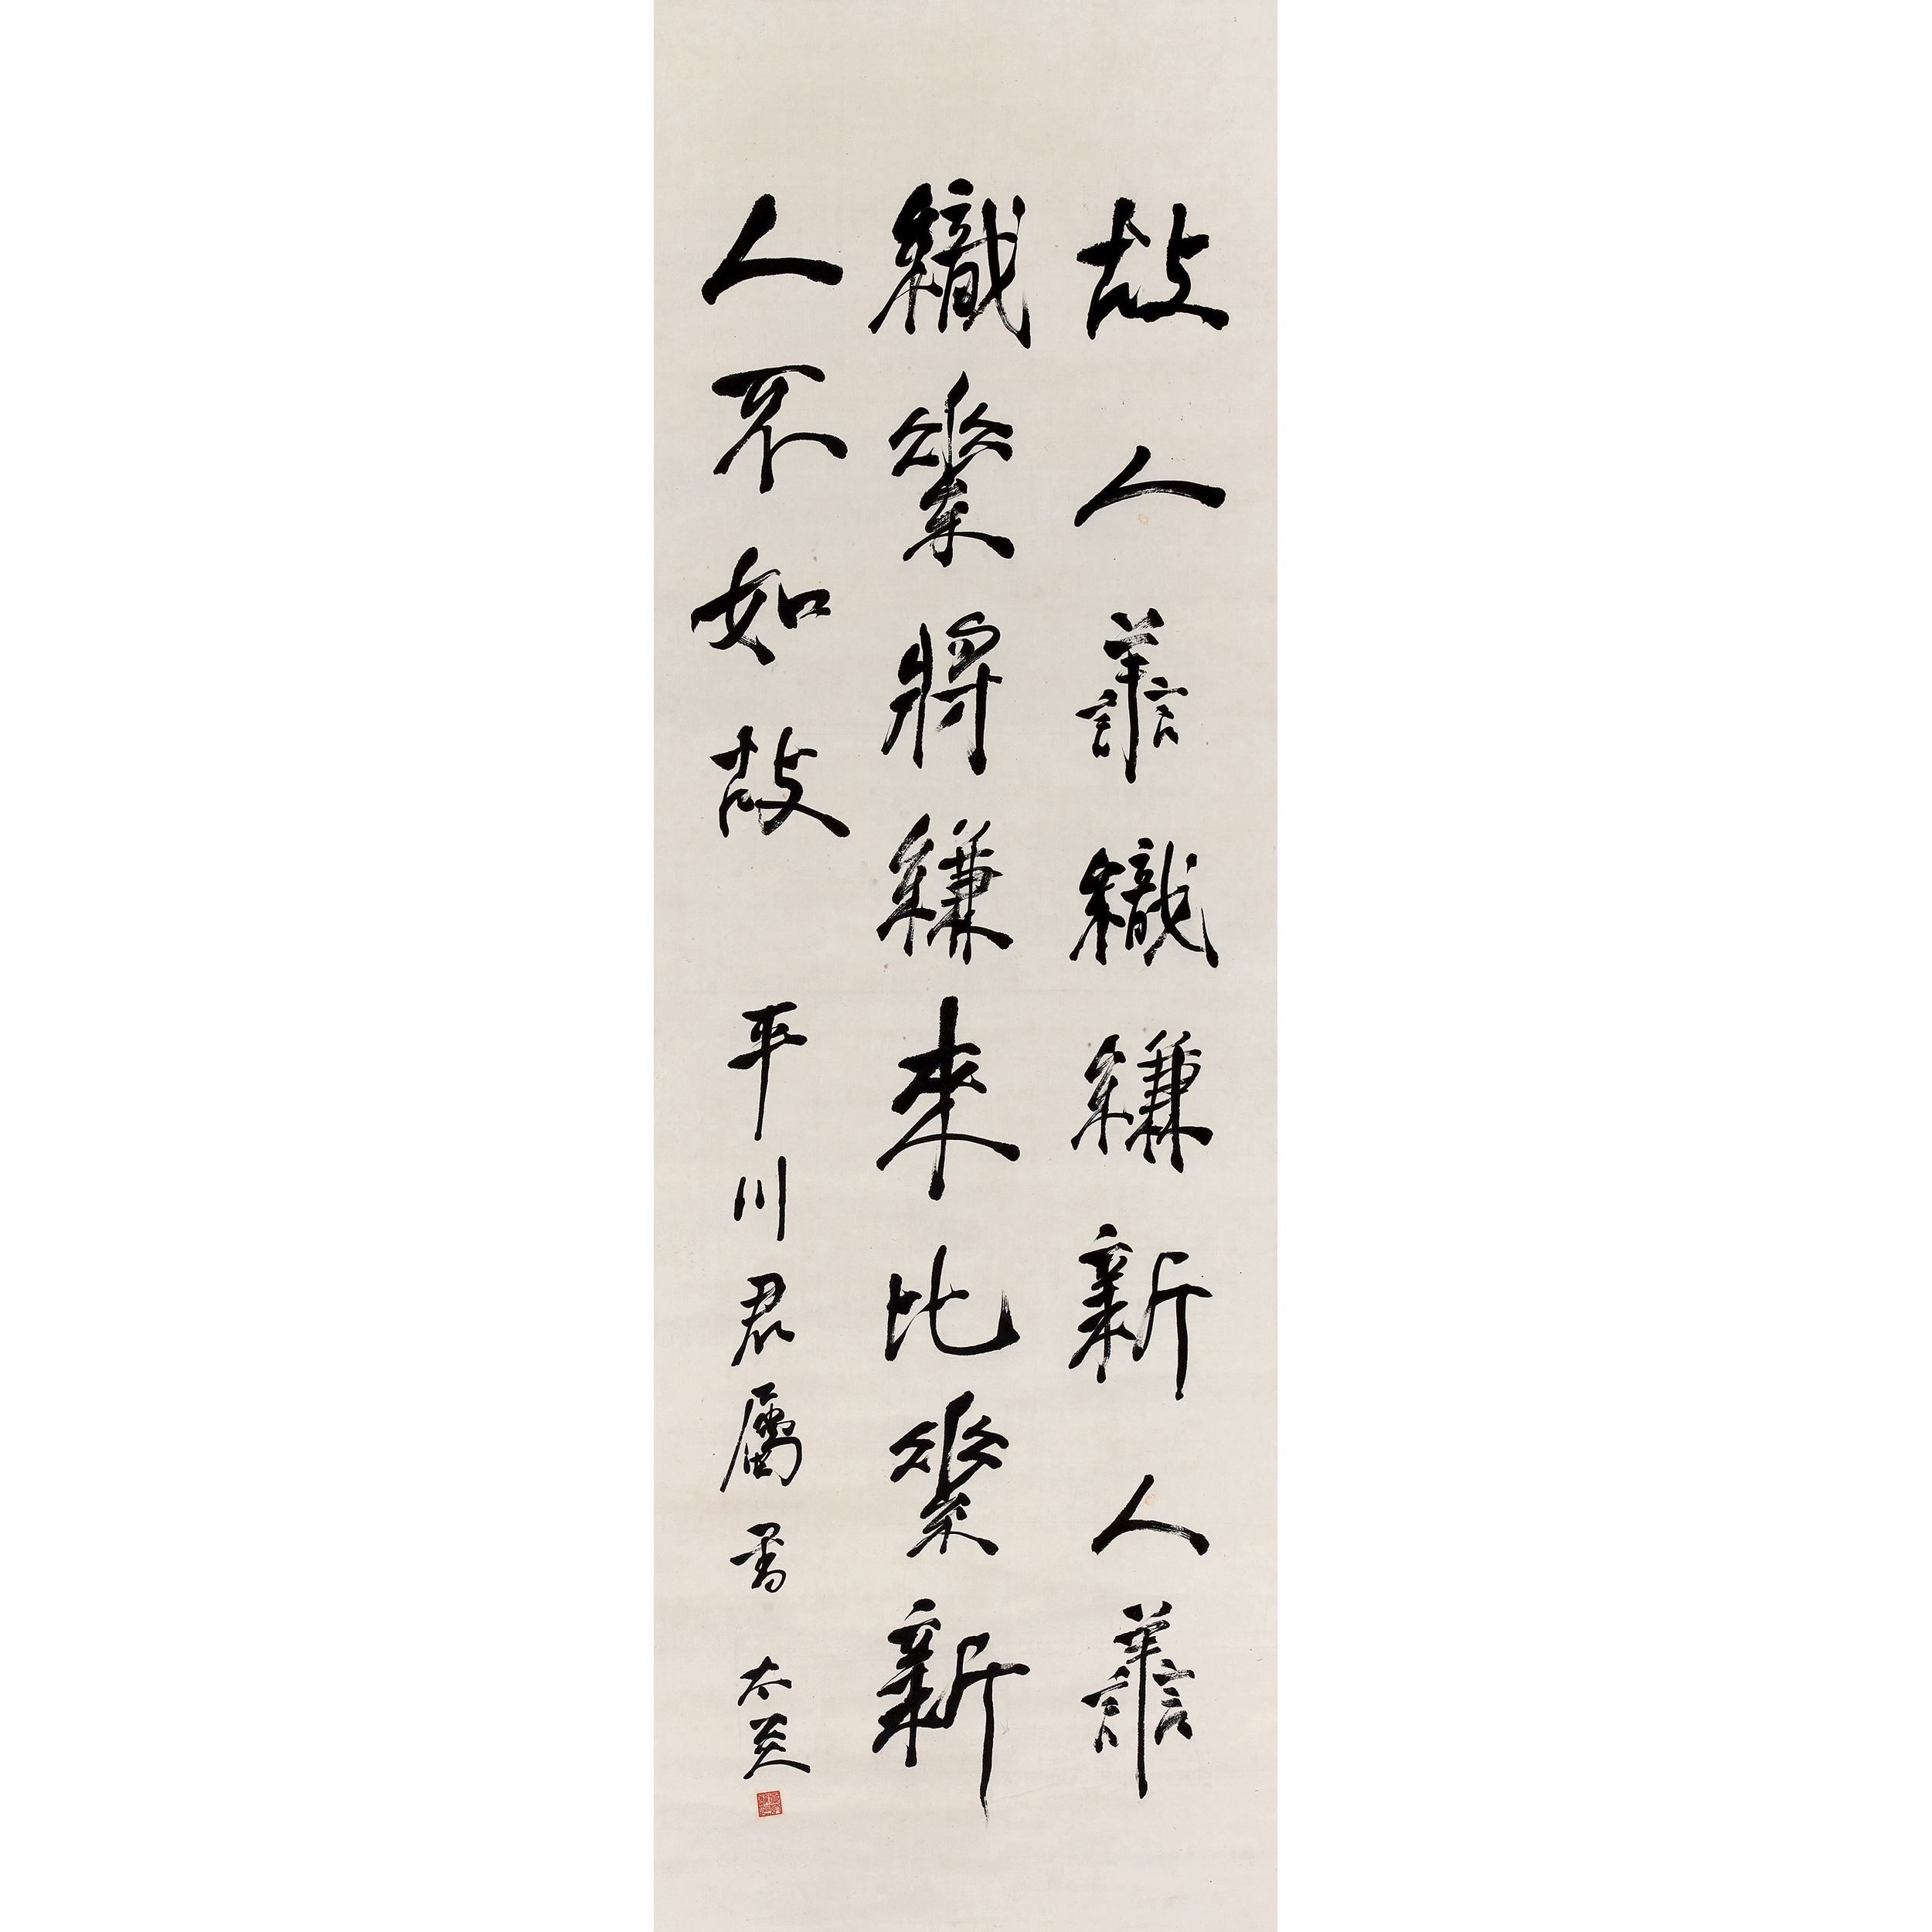 故人譱織縑新人譱
織素將縑來比素新
人不如故 平川君屬書 太炎